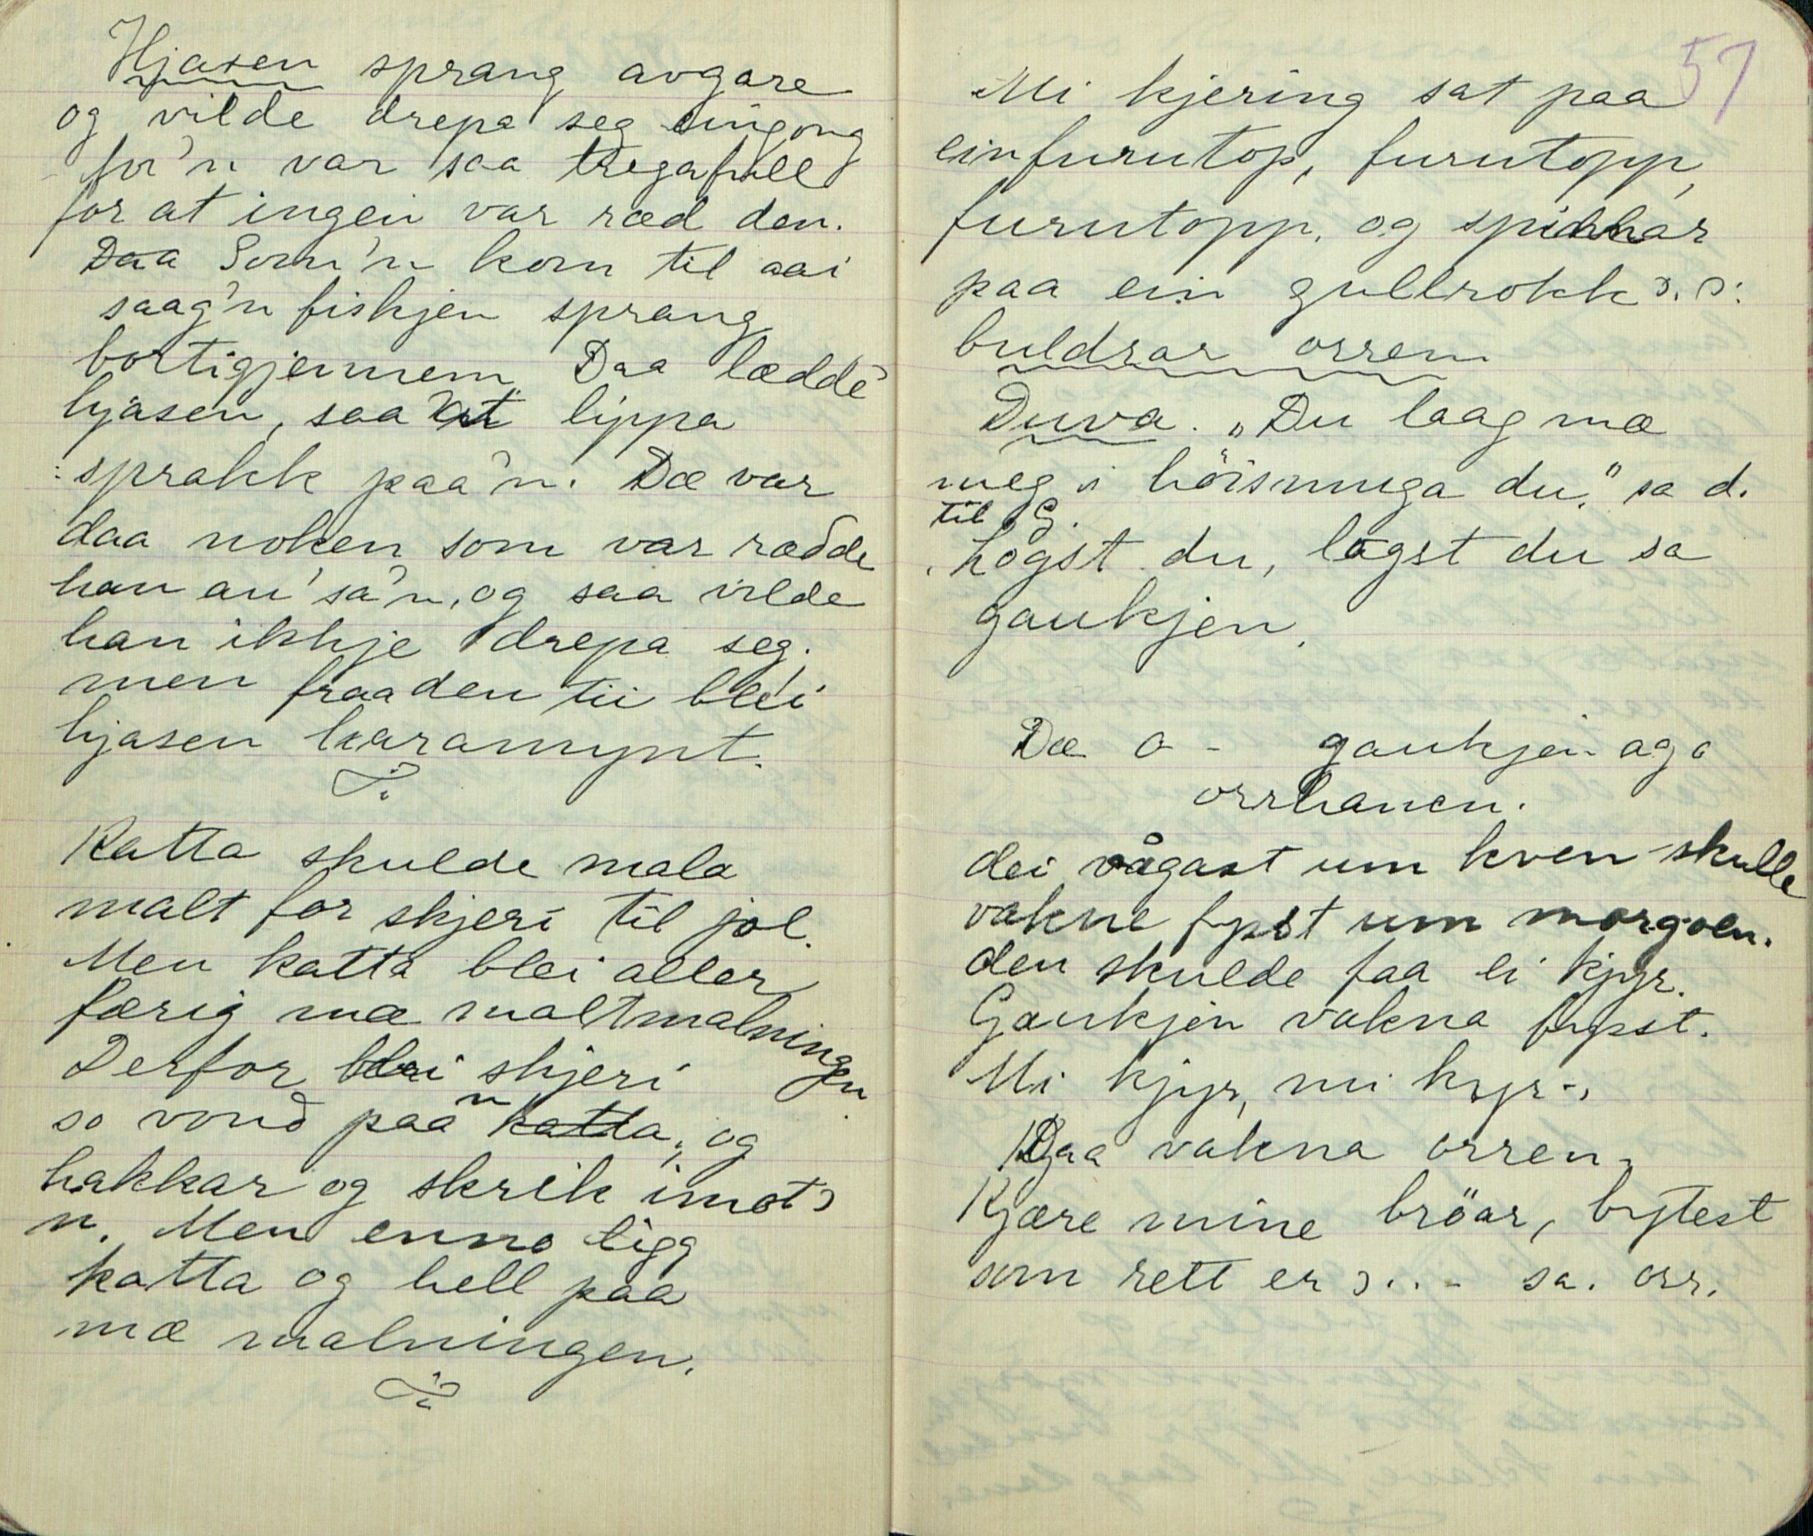 Hjasen sprang avgare
og vilde drepa seg eingong
for'n var saa tregafull
for at ingen var ræd den.
Daa Som'n kom til aai
saag'n fiskjen sprang
bortigjennem. Daa lædde
hjasen, saa at lippa
sprakk paa'n. Dæ var
daa noken som var rædde
han au' sa'n, og saa vilde
han ikkje drepa seg.
men fraa den tii blei
hjasen karamynt.
Katta skulde mala
malt for skjeri til jol.
Men katta blei aller
færig mæ maltmalningen
Derfor blei skjeri
so vond paa'n katta, og
hakkar og skrik imot
n. Men enno ligg
katta og hell paa
mæ malningen.
57
Mi kjering sat paa
ein furutop, furutopp,
furutopp, og spinnar
paa ein gullrokk
buldrar orren
Duva. "Du laag mæ
meg i höismuga du," sa d.
til G.
högst du, lögst du sa
gaukjen.
Dæ a - gaukjen aga
orrhanen.
dei vågast um kven skulle
vakne fyst um morgoen.
den skulde faa ei kjyr.
Gaukjen vakna fyst.
Mi kjyr, mi kyr -,
Daa vakna orren.
Kjære mine bröar, bytest
som rett er . . - sa. orr.